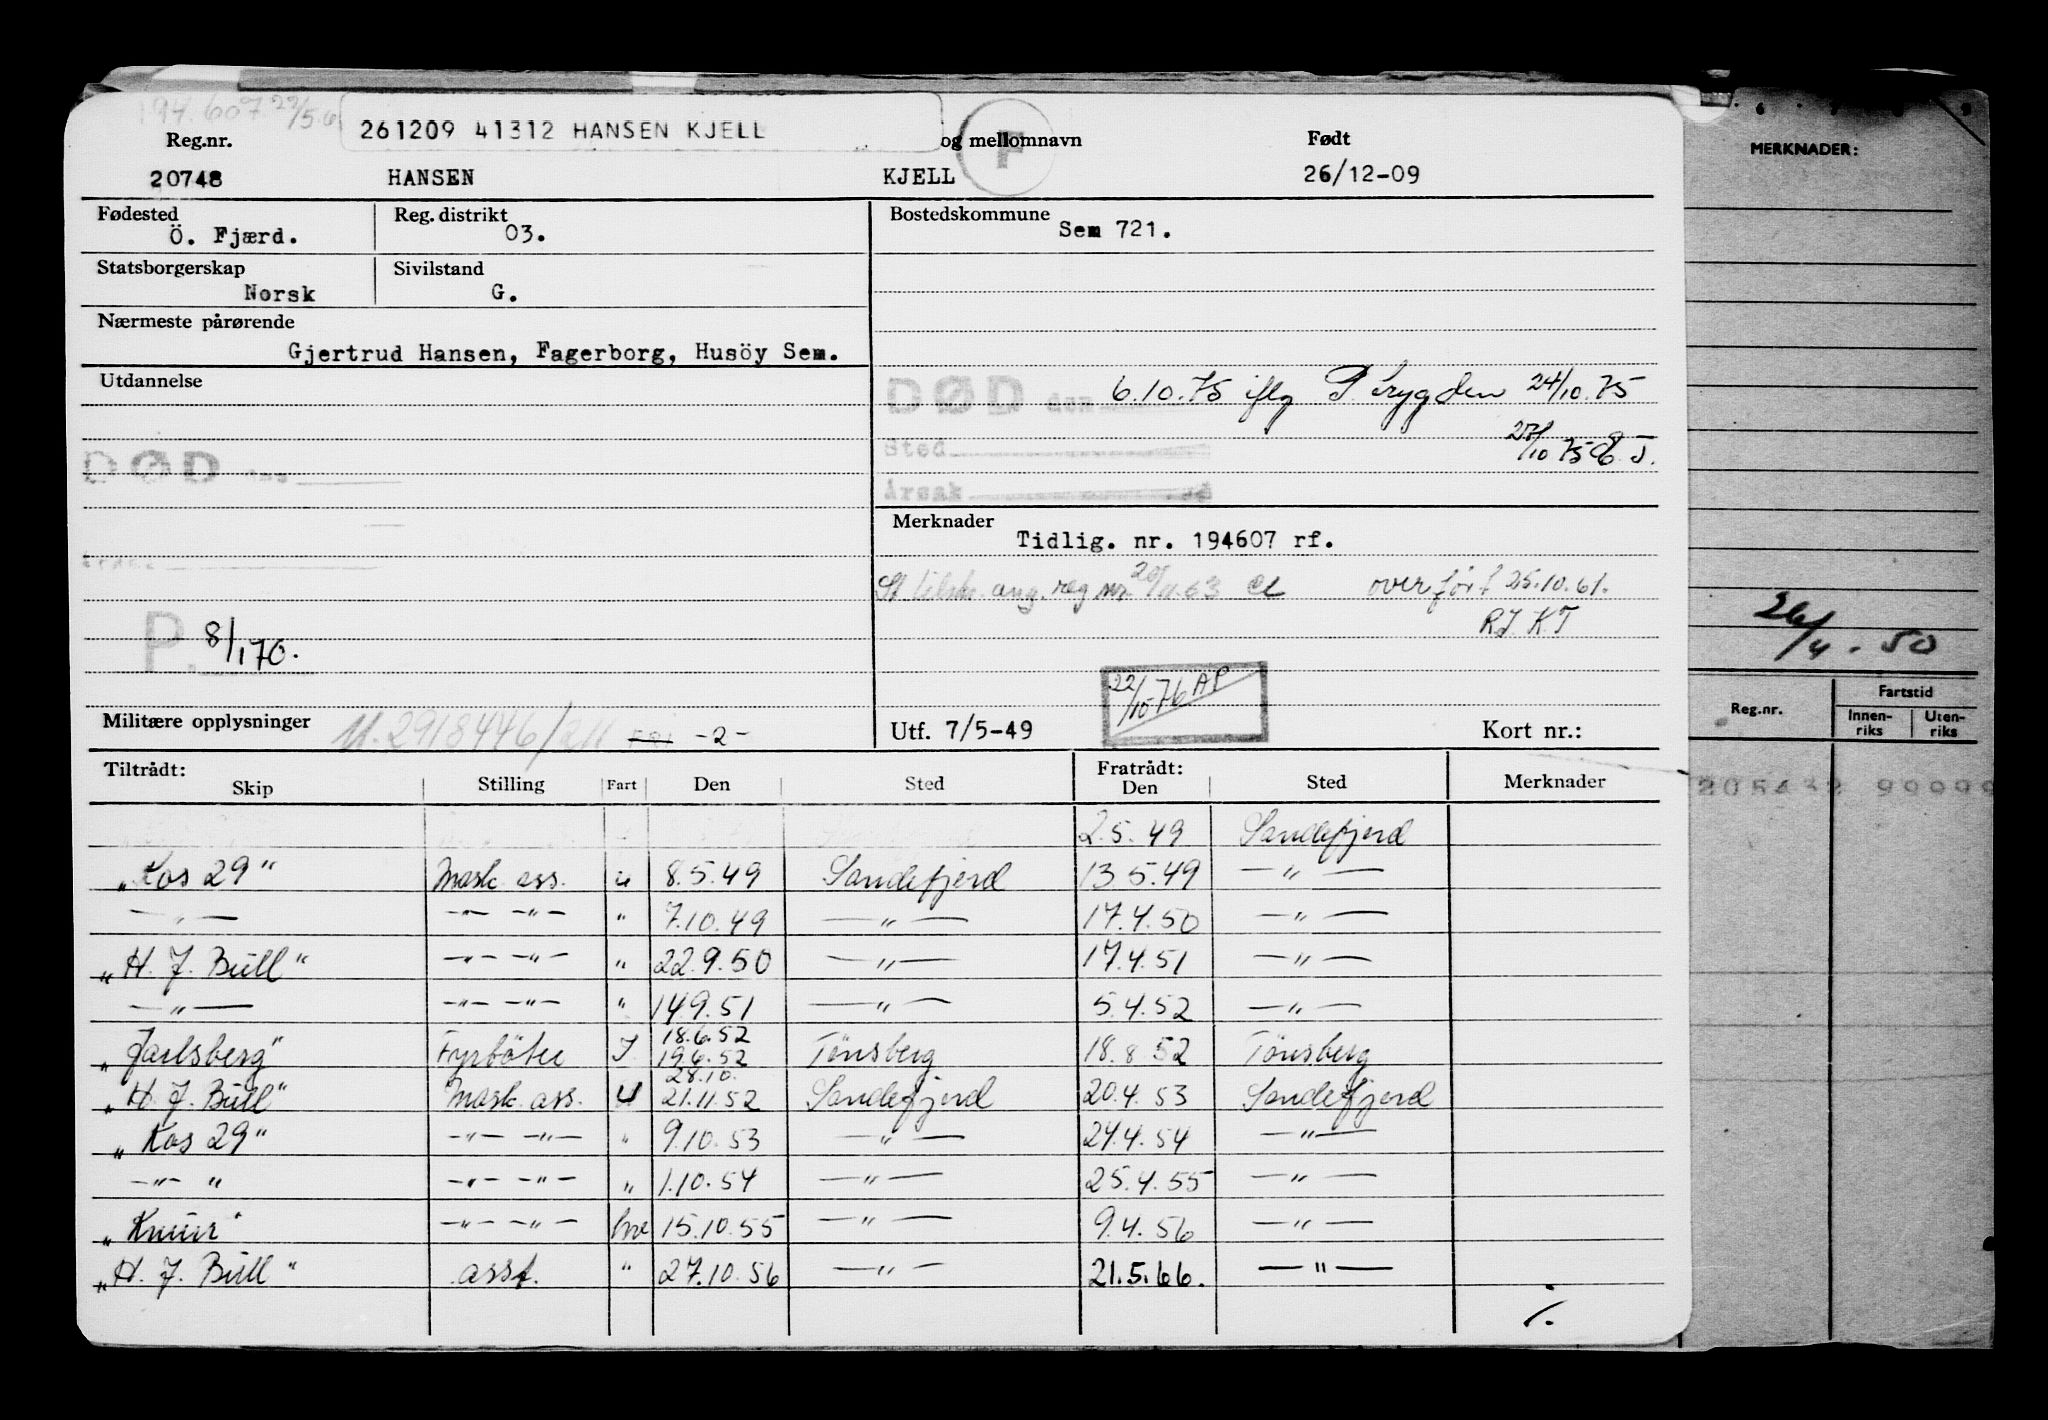 194.607 22/5.6
261209 41312 HANSEN KJELL
Reg.nr. og mellomnavn F Født
20748 HANSEN KJELL 26/12-09
Fødested Reg. distrikt Bostedskommune
Ö. Fjærd. 03. Sem 721.
Statsborgerskap Sivilstand
Norsk G.
Nærmeste pårørende
Gjertrud Hansen, Fagerborg, Husöy Sem.
Utdannelse
DØD den 6.10.75 iflg P. trygden 24/10.75
Sted 27/10 75 E. J.
Årsak
DØD den
Merknader
Tidlig. nr. 194607 rf.
St tilskr. ang. reg nr. 20/11.63 overført 25.10.61.
RJ. KT
P. 8/1 70.
22/10 76 AP
Militære opplysninger M. 2918446/211 FRI -2- Utf. 7/5-49 Kort nr.:
Tiltrådt: Fratrådt:
Skip Stilling Fart Den Sted Den Sted Merknader
2.5.49 Sandefjord
"Kos 29" Mask. ass. u 8.5.49 Sandefjord 13.5.49 —"—
—"— —"— —"— " 7.10.49 —"— 17.4.50 —"—
"H. J. Bull" —"— —"— " 22.9.50 —"— 17.4.51 —"—
—"— —"— —"— " 14.9.51 —"— 5.4.52 —"—
18.6.52
"Jarlsberg" Fyrböter J. 19.6.52 Tönsberg 18.8.52 Tönsberg
28.10.
"H. J. Bull" Mask. ass. U 21.11.52 Sandefjord 20.4.53 Sandefjord
"Kos 29" —"— —"— " 9.10.53 —"— 24.4.54 —"—
—"— " —"— —"— " 1.10.54 —"— 25.4.55 —"—
"Knurr" —"— —"— hva 15.10.55 —"— 9.4.56 —"—
"H. J. Bull" asst. " 27.10.56 —"— 21.5.66. —"—
./.
MERKNADER:
26/4.50
Reg.nr. Fartstid
Innen-riks Uten-riks
205432 99999